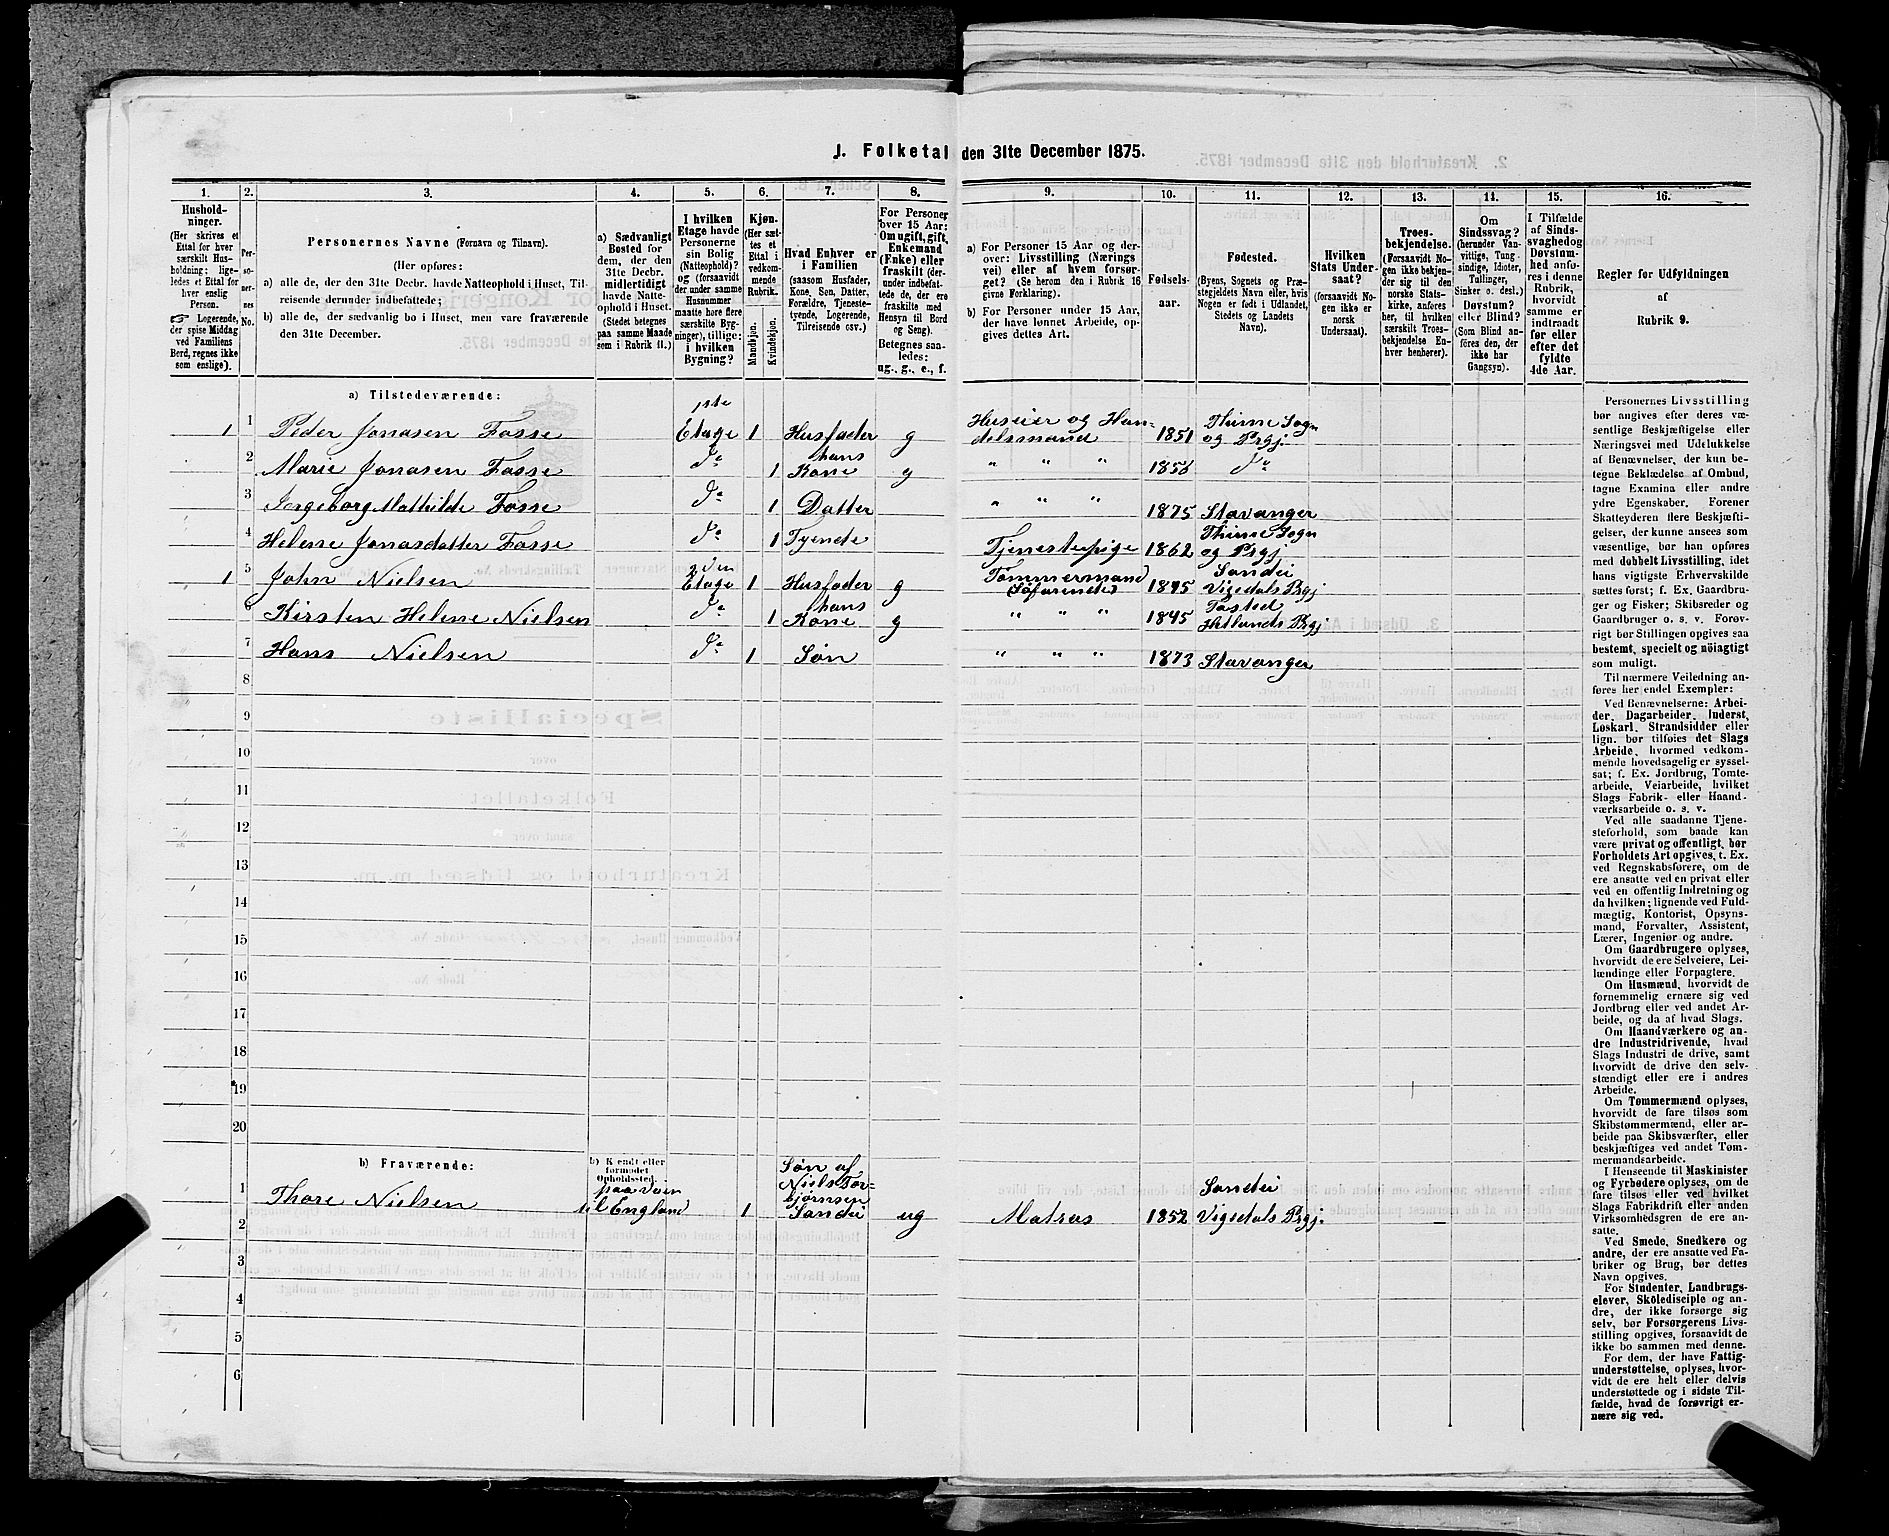 1. Folketal den 31te December 1875.
1. 2. 3. 4. 5. 6. 7. 8. 9. 10. 11. 12. 13. 14. 15. 16.
Hushold-
ninger.
(Her skrives et
Ettal for hver
særskilt Hus-
holdning; lige-
ledes et Ettal for
hver enslig
Person.
☞ Logerende,
der spise Middag
ved Familiens
Bord, regnes ikke
som enslige).
Per-
so-
ner-
nes
No.
Personernes Navne (Fornavn og Tilnavn).
(Her opføres:
a) alle de, der den 31te Decbr. havde Natteophold i Huset, Til-
reisende derunder indbefattede;
b) alle de, der sædvanlig bo i Huset, men vare fraværende
den 31te December.
a) Sædvanligt
Bosted for
dem, der den
31te Decbr.
midlertidigt
havde Natte-
ophold i Huset.
(Stedet betegnes
paa samme Maade
som i Rubrik 11.)
I hvilken
Etage havde
Personerne
sin Bolig
(Natteophold)?
og (forsaavidt
der under samme
Husnummer
maatte høre flere
særskilte Byg-
ninger), tillige:
i hvilken
Bygning?
Kjøn.
(Her sæt-
tes et
Ettal i
vedkom-
mende
Rubrik.
Mandkjøn.
Kvindekjøn.
Hvad Enhver er
i Familien
(saasom Husfader,
Kone, Søn, Datter,
Forældre, Tjeneste-
tyende, Logerende,
Tilreisende osv.)
For Personer
over 15 Aar:
Om ugift, gift,
Enkemand
(Enke) eller
fraskilt (der-
under indbefat-
tede de, der ere
fraskilte med
Hensyn til Bord
og Seng).
Betegnes saa-
ledes:
ug., g., e., f.
a) For Personer 15 Aar og der-
over: Livsstilling (Nærings
vei) eller af hvem forsør-
get? (Se herom den i Rubrik 16
givne Forklaring).
b) For Personer under 15 Aar,
der have lønnet Arbeide, op-
gives dettes Art.
Fødsels-
aar.
Fødested.
(Byens, Sognets og Præ-
stegjeldets Navn eller, hvis
Nogen er født i Udlandet,
Stedets og Landets
Navn).
Hvilken
Stats Under-
saat?
(forsaavidt No-
gen ikke er
norsk
Undersaat).
Troes-
bekjendelse.
(Forsaavidt No-
gen ikke bekjen-
der sig til den
norske Stats-
kirke, anføres
her, til hvilken
særskilt Troes-
bekjendelse En-
hver henhører).
Om
Sindssvag?
(herunder Van-
vittige, Tung-
sindige, Idioter,
Tullinger,
Sinker o. desl.)
Døvstum?
eller Blind?
(Som Blind an-
føres den, der
ikke har
Gangsyn).
I Tilfælde
af Sinds-
svaghed og
Døvstum-
hed anfø-
res i denne
Rubrik,
hvorvidt
samme er
indtraadt
før eller
efter det
fyldte
4de Aar.
Regler for Udfyldningen
af
Rubrik 9.
a) Tilstedeværende:
1 1 Peder Jonasen Fosse 1ste Etage 1 Husfader g Huseier og Han-
delsmand 1851 Thime Sogn
og Prgj.
2 Marie Jonasen Fosse do 1 hans Kone g " " " 1856 do
3 Ingeborg Mathilde Fosse do 1 Datter " " " 1875 Stavanger
4 Helene Jonasdatter Fosse do 1 Tyende Tjenestepige 1862 Thime Sogn
og Prgj
1 5 John Nielsen 2den Etage 1 Husfader g Tømmermand
Søfarende 1845 Sandei
Vigedals Prgj
6 Kirsten Helene Nielsen do 1 hans Kone g " " " 1845 Tasted
Hetlands Prgj
7 Hans Nielsen do 1 Søn " " " 1873 Stavanger
8
9
10
11
12
13
14
15
16
17
18
19
20
b) Fraværende:
b) Kjendt eller
formodet
Opholdssted.
1 Thore Nielsen paa veien
til England 1 Søn af
Niels Tor-
bjørnsen
Sandei ug Matros 1852 Sandei
Vigedals Prgj.
2
3
4
5
6
Personernes Livsstilling
bør angives efter deres væ-
sentlige Beskjæftigelse eller
Næringsvei med Udelukkelse
af Benævnelser, der kun be-
tegne Beklædelse af Ombud,
tagne Examina eller andre
ydre Egenskaber. Forener
Skatteyderen flere Beskjæfti-
gelser, der kunne ansees som
væsentlige, bør han opføres
med dobbelt Livsstilling, idet
hans vigtigste Erhvervskilde
sættes først; f. Ex. Gaardbru-
ger og Fisker; Skibsreder og
Gaardbruger o. s. v. Forøv-
rigt bør Stillingen opgives saa
bestemt, specielt og nöiagtigt
som muligt.
Til nærmere Veiledning an-
føres her endel Exempler:
Ved Benævnelserne: Arbei-
der, Dagarbeider, Inderst,
Løskarl, Strandsidder eller
lign. bør tilføies det Slags
Arbeide, hvormed vedkom-
mende hovedsagelig er syssel-
sat; f. Ex. Jordbrug, Tomte-
arbeide, Veiarbeide, hvilket
Slags Fabrik- eller Haand-
værksarbeide o. s. v.
Ved alle saadanne Tjene-
steforhold, som baade kan
være privat og offentligt, bør
Forholdets Art opgives, t. Ex.
ved Regnskabsførere, om de
ere ansatte ved en privat eller
ved en offentlig Indretning og
da hvilken; lignende ved Fuld-
mægtig, Kontorist, Opsyns-
mand, Forvalter, Assistent,
Lærer, Ingeniør og andre.
Om Gaardbrugere oplyses,
hvorvidt de ere Selveiere, Lei-
lændinge eller Forpagtere.
Om Husmænd, hvorvidt de
fornemmelig ernære sig ved
Jordbrug eller ved andet Ar-
beide, og da af hvad Slags.
Om Haandværkere og an-
dre Industridrivende, hvad
Slags Industri de drive, samt
hvorvidt de drive den selv-
stændigt eller ere i andres
Arbeide.
Om Tømmermænd oplyses,
hvorvidt de fare tilsøs som
Skibstømmermænd, eller ar-
beide paa Skibsværfter, eller
beskjæftiges ved andet Tøm-
mermandsarbeide.
I Henseende til Maskinister
og Fyrbødere oplyses, om de
fare tilsøs eller ved hvilket
Slags Fabrikdrift eller anden
Virksomhedsgren de ere an-
satte.
Ved Smede, Snedkere og
andre, der ere ansatte ved Fa-
briker og Brug, bør dettes
Navn opgives.
For Studenter, Landbrugs-
elever, Skoledisciple og an-
dre, der ikke forsørge sig
selv, bør Forsørgerens Livs-
stilling opgives, forsaavidt de
ikke bo sammen med denne.
For dem, der have Fattig-
understøttelse, oplyses, hvor-
vidt de ere helt eller delvis
understøttede og i sidste Til-
fælde, hvad de forøvrigt er-
nære sig ved.